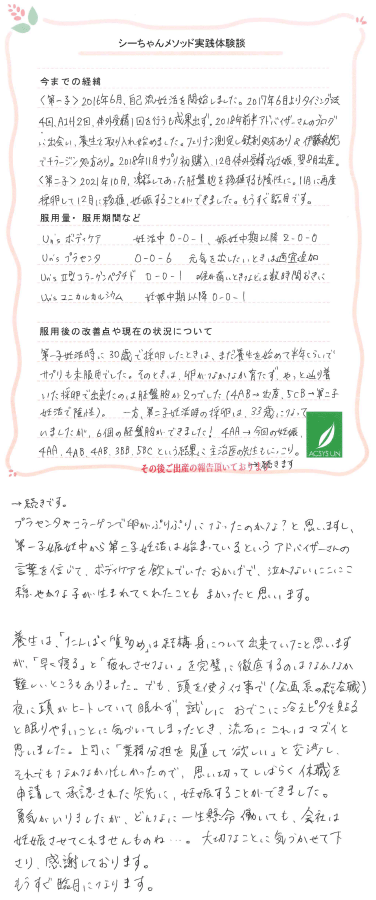 シーちゃんメソッド実践体験談
今までの経緯
〈第一子〉2016年6月、自己流妊活を開始しました。2017年6月よりタイミング法
4回、AIH2回、体外受精1回を行うも成果出ず。2018年前半アドバイザーさんのブログ
に出会い、養生を取り入れ始めました。フェリチン測定し鉄剤処方あり&
でチラージン処方あり。2018年11月サプリ初購入、12月体外受精で妊娠、翌8月出産。
〈第二子〉2021年10月、凍結してあった胚盤胞を移植するも陰性に。11月に再度
採卵して12月に移植、妊娠することができました。もうすぐ臨月です。
服用量・服用期間など
Un's ボディケア 妊活中 0-0-1、妊娠中期以降 2-0-0
Un's プラセンタ 0-0-6 元気を出したいときは適宜追加
Un's Ⅱ型コラーゲンペプチド 0-0-1 喉が痛いときなどは数時間おきに
Un's ユニカルカルシウム 妊娠中期以降 0-0-1
服用後の改善点や現在の状況について
第一子妊活時に30歳で採卵したときは、まだ養生を始めて半年くらいで
サプリも未服用でした。そのときは、卵がなかなか育たず、やっと辿り着
いた採卵で出来たのは胚盤胞が2つでした(4AB→出産、5CB→第二子
妊活で陰性)。一方、第二子妊活時の採卵は、33歳になって
いましたが、6個の胚盤胞ができました! 4AA→今回の妊娠、
4AA、4AB、4AB、3BB、5BCという結果に主治医の先生もにっこり。
→続きます
その後ご出産の報告頂いております
ACSYS UN
→続きです。
プラセンタやコラーゲンで卵がぷりぷりになったのかな?と思いますし、
第一子妊娠中から第二子妊活は始まっているというアドバイザーさんの
言葉を信じて、ボディケアを飲んでいたおかげで、泣かないにこにこ
穏やかな子が生まれてくれたことも よかったと思います。
養生は、「たんぱく質多め」は結構身について出来ていたと思います
が、「早く寝る」と「疲れさせない」を完璧に徹底するのはなかなか
難しいところもありました。でも、頭を使う仕事で(企画系の総合職)
夜に頭がヒートしていて眠れず、試しに おでこに冷えピタを貼る
と眠りやすいことに気づいてしまったとき、流石にこれはマズイと
思いました。上司に「業務分担を見直して欲しい」と交渉し、
それでもなかなか忙しかったので、思い切ってしばらく休職を
申請して承認された矢先に、妊娠することができました。
勇気がいりましたが、どんなに一生懸命働いても、会社は
妊娠させてくれませんものね…。大切なことに気づかせて下
さり、感謝しております。
もうすぐ臨月になります。